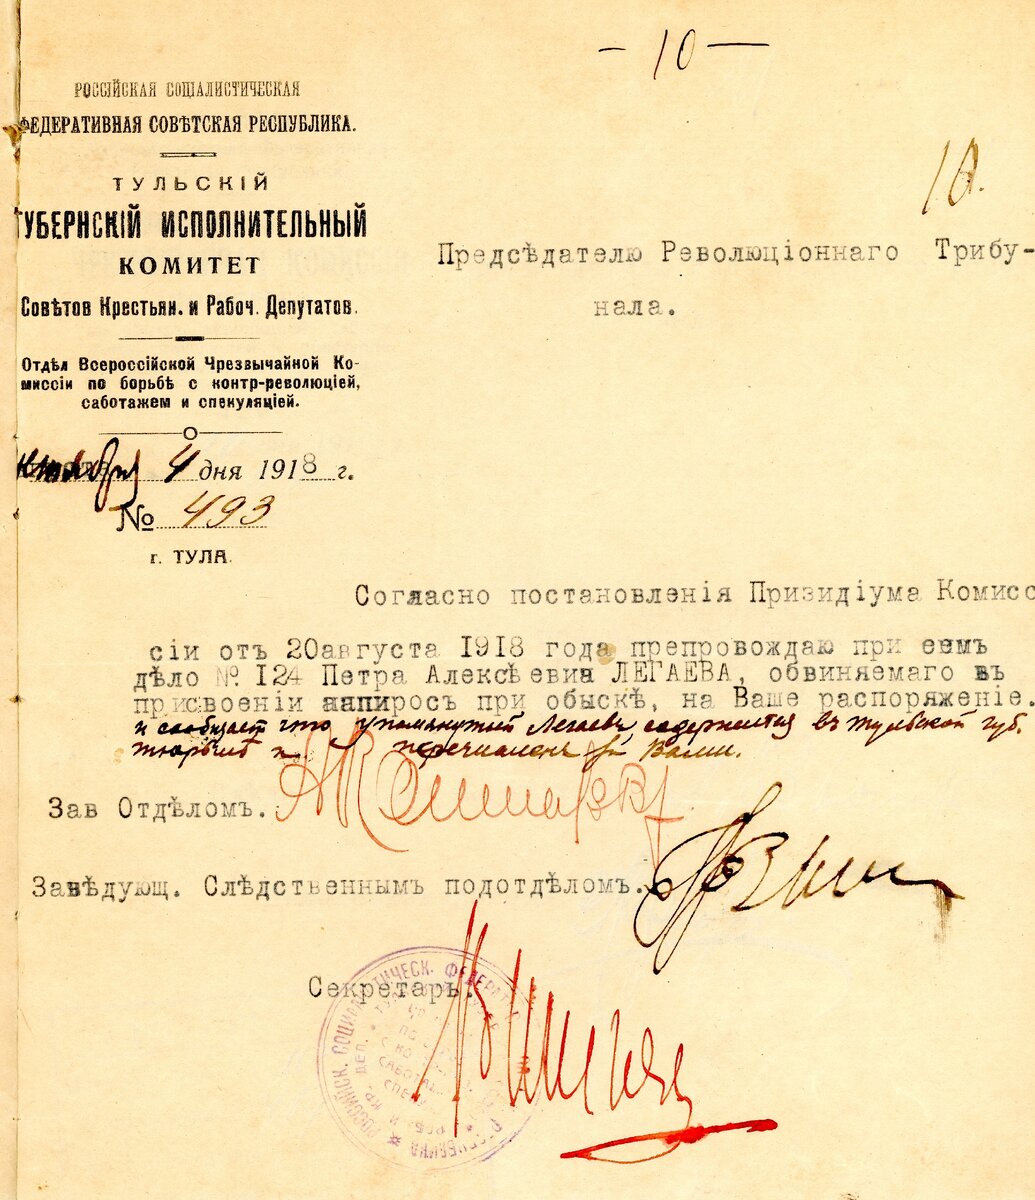 - 10 -
10.
РОССІЙСКАЯ СОЦІАЛИСТИЧЕСКАЯ
ФЕДЕРАТИВНАЯ СОВѢТСКАЯ РЕСПУБЛИКА.
ТУЛЬСКІЙ
ГУБЕРНСКІЙ ИСПОЛНИТЕЛЬНЫЙ
КОМИТЕТ
Совѣтов Крестьян. и Рабоч. Депутатов.
Отдѣл Всероссійской Чрезвычайной Ко-
миссіи по борьбѣ с контр-революціей,
саботажем и спекуляціей.
4 дня 1918 г.
№ 493
г. ТУЛА.
Предсѣдателю Революціоннаго Трибу-
нала.
Согласно постановленія Призидіума Комисс
сіи отъ 20августа 1918 года препровождаю при семъ
дѣло № 124 Петра Алексѣевича ЛЕГАЕВА, обвиняемаго въ
присвоеніи папиросъ при обыскѣ, на Ваше распоряженіе.
и сообщает что упомянутый Легаевъ содержится въ тульской губ.
тюрьмѣ и перечислен Вами.
Зав Отдѣломъ.
Завѣдующ. Слѣдственнымъ подотдѣломъ.
Секретарь.
РОССИЙСК. СОЦИАЛИСТИЧЕСК. ФЕДЕРАТ